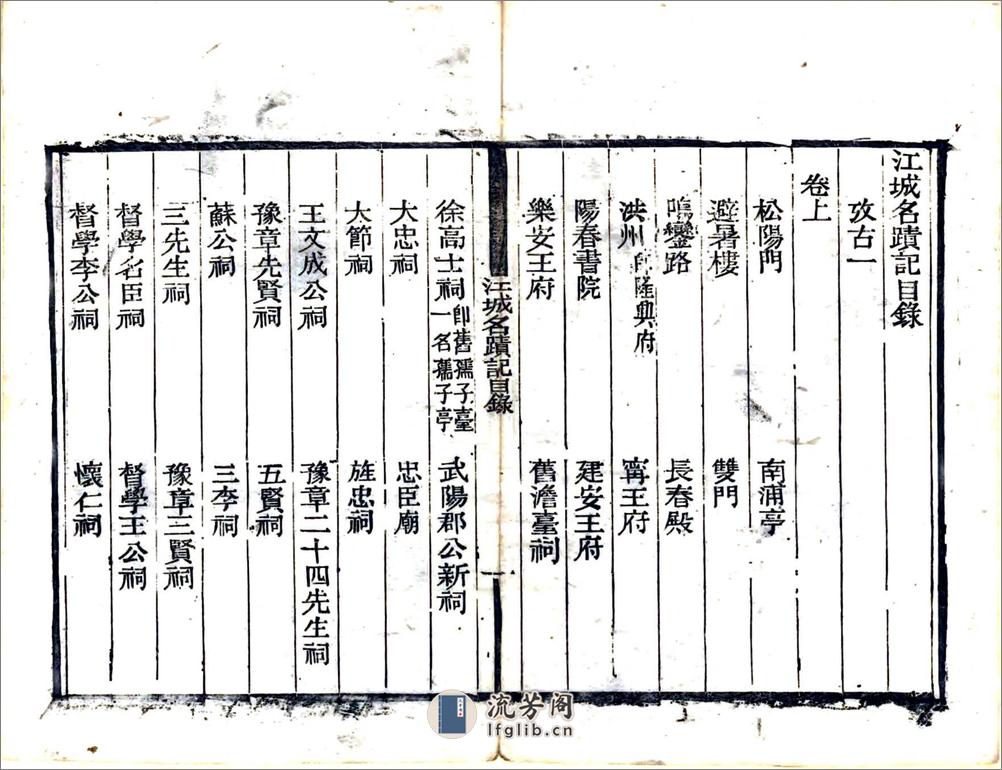 江城名蹟記目錄
攷古一
卷上
松陽門 南浦亭
避暑樓 雙門
鳴鑾路 長春殿
洪州即隆興府 甯王府
陽春書院 建安王府
樂安王府 舊澹臺祠
江城名蹟記目錄 一
徐高士祠即舊孺子臺一名孺子亭 武陽郡公新祠
大忠祠 忠臣廟
大節祠 旌忠祠
王文成公祠 豫章二十四先生祠
豫章先賢祠 五賢祠
蘇公祠 三李祠
三先生祠 豫章三賢祠
督學名臣祠 督學王公祠
督學李公祠 懷仁祠
流芳阁
lfglib.cn